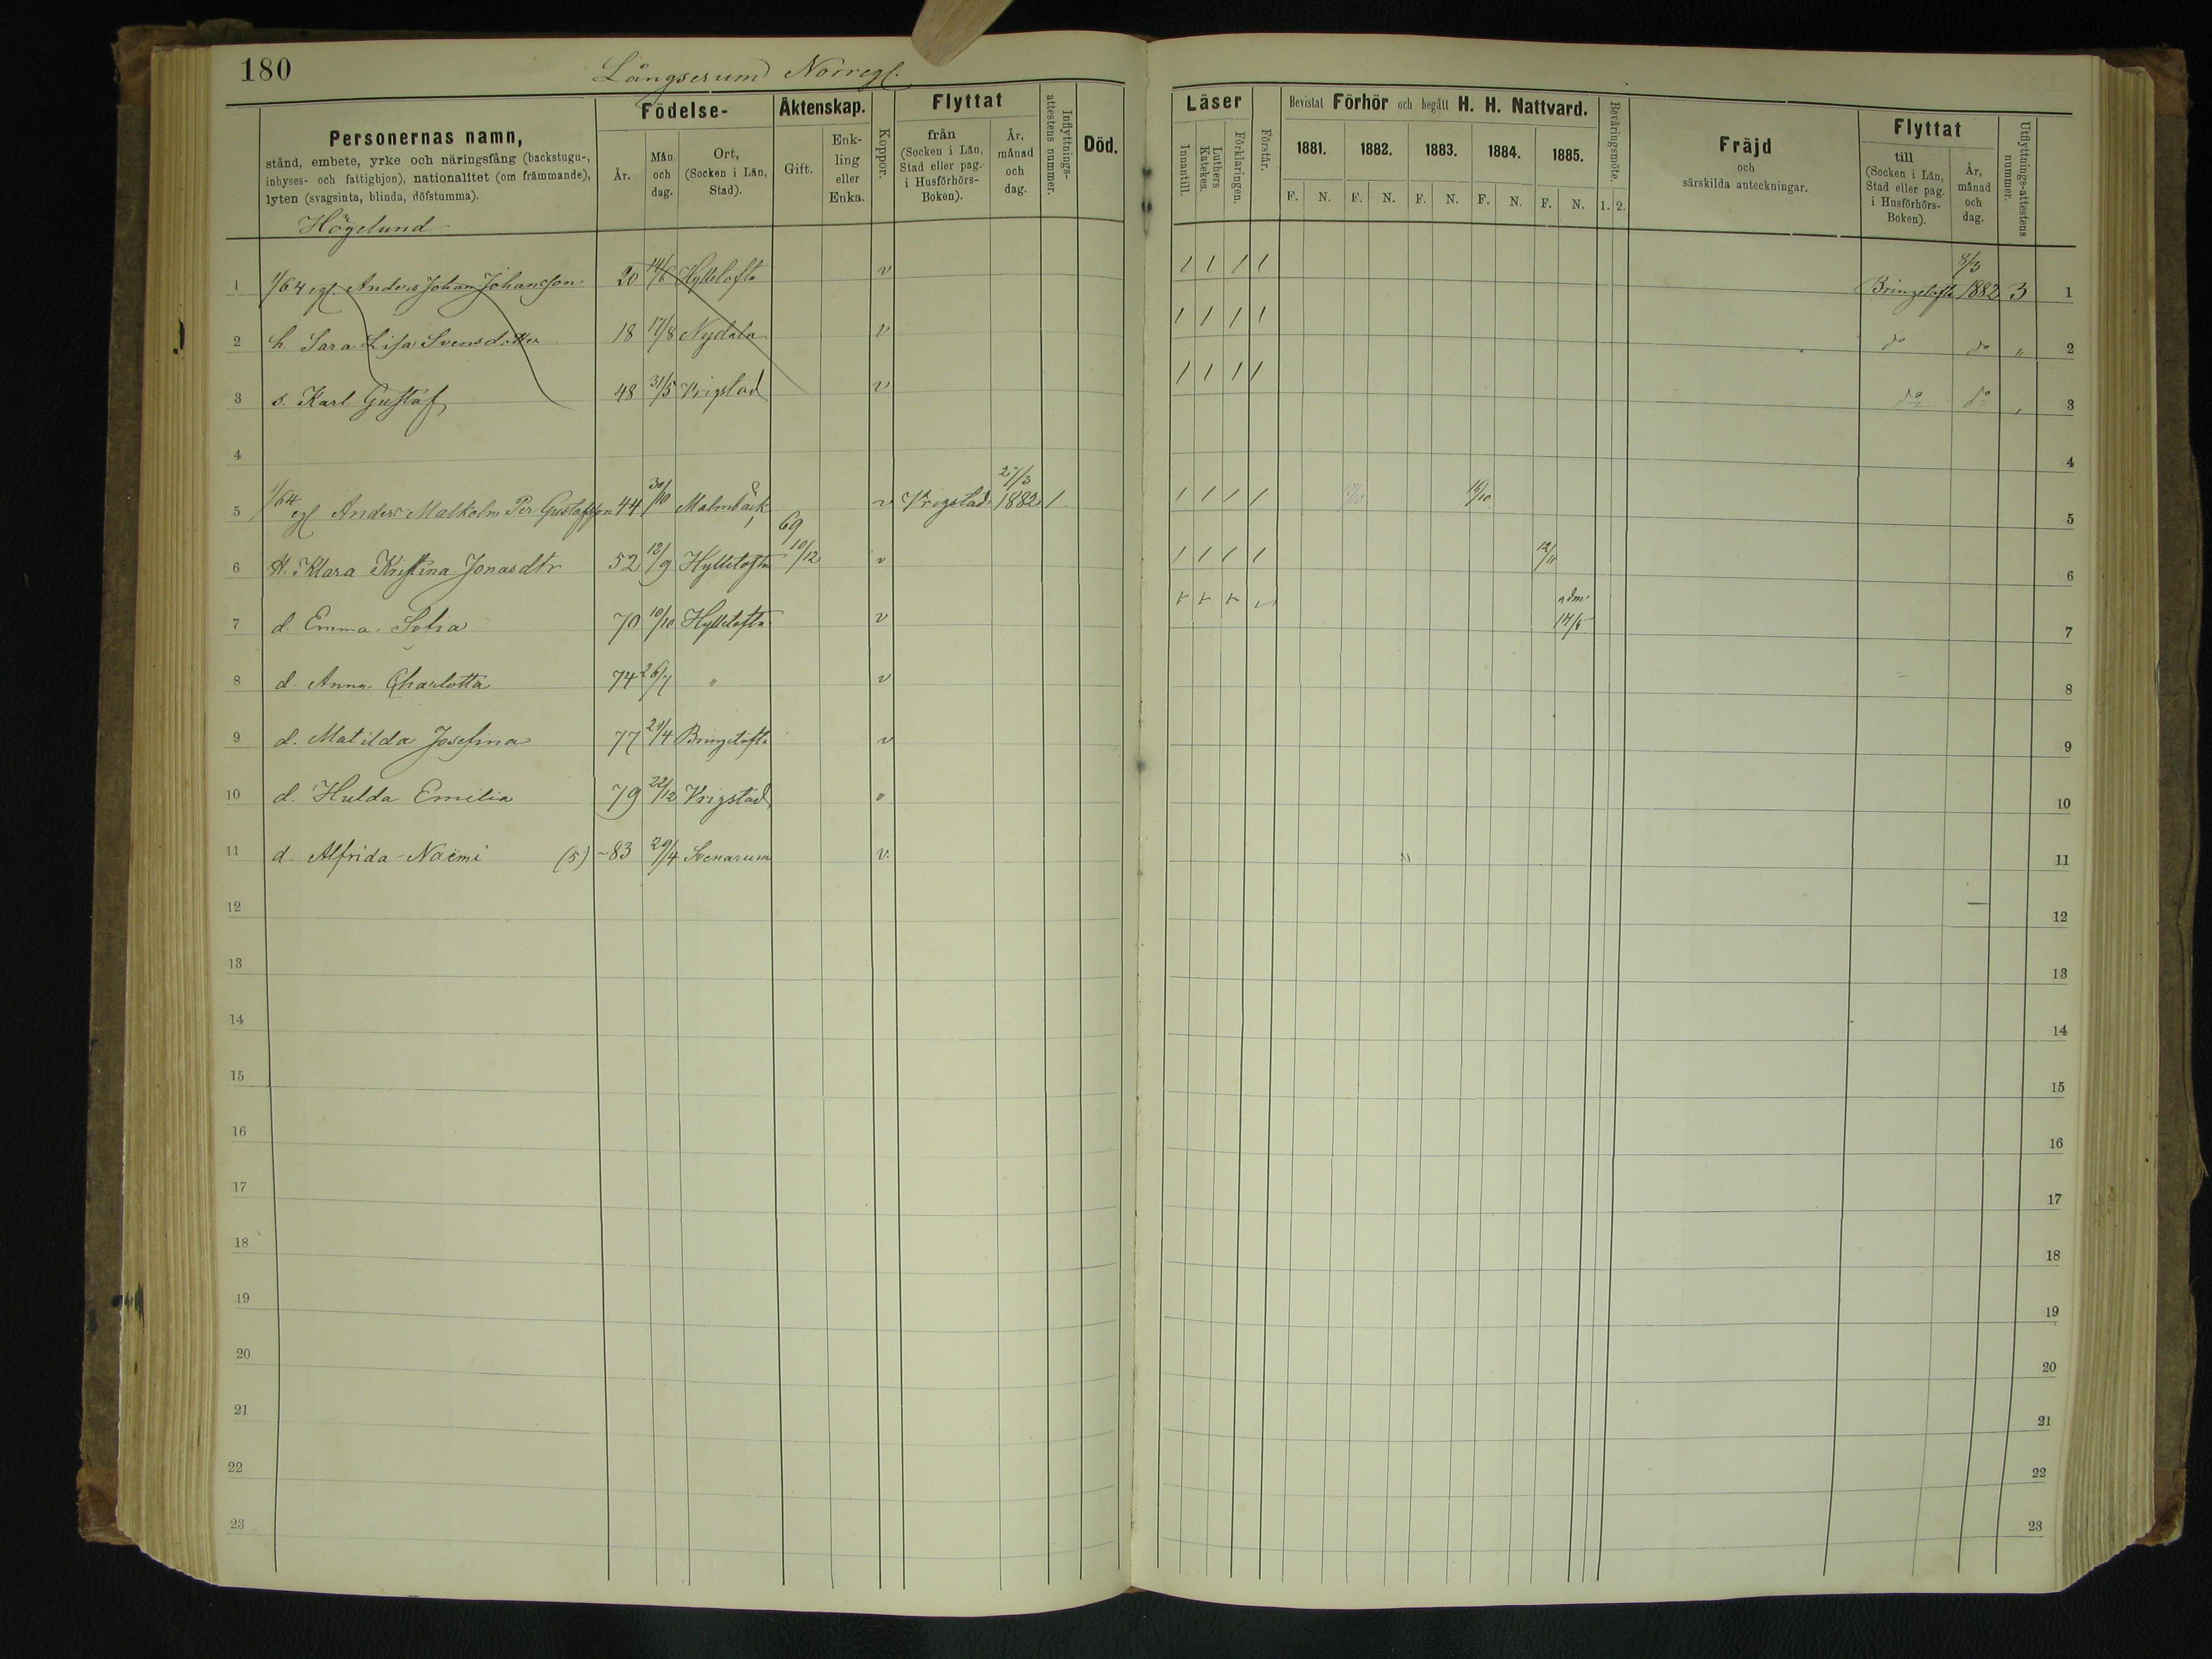 180
Långserum Norreg.
Personernas namn,
stånd, embete, yrke och näringsfång (backstugu-,
inhyses- och fattighjon), nationalitet (om främmande),
lyten (svagsinta, blinda, döfstumma).
Födelse-
År.
Mån. och dag.
Ort, (Socken i Län, Stad).
Äktenskap.
Gift.
Enk- ling eller Enka.
Koppor.
Flyttat
från (Socken i Län, Stad eller pag. i Husförhörs- Boken).
År, månad och dag.
Inflyttnings- attestens nummer.
Död.
Läser
Innantill.
Luthers Katekes.
Förklaringen.
Förstår.
Bevistat Förhör och begått H. H. Nattvard.
1881. 1882. 1883. 1884. 1885.
F. N. F. N. F. N. F. N. F. N.
Beväringsmöte.
1. 2.
Fräjd
och
särskilda anteckningar.
Flyttat
till (Socken i Län, Stad eller pag. i Husförhörs- Boken).
År, månad och dag.
Utflyttnings-attestens nummer.
Högelund
1 1/64 egl. Anders Johan Johansson 20 14/6 Hylletofta v 1 1 1 1 Bringetofta 8/3 1882 3 1
2 h. Sara Lisa Svensdotter 18 17/8 Nydala v 1 1 1 1 do do " 2
3 s. Karl Gustaf 48 31/5 Vrigstad v 1 1 1 1 do do , 3
4 4
5 1/64 egl Anders Malkolm Per Gustafsson 44 30/10 Malmbäck v Vrigstad 27/3 1882 1 1 1 1 1 16/10 5
6 H. Klara Kristina Jonasdtr 52 12/9 Hylletofta 69 10/12 v 1 1 1 1 12/11 6
7 d. Emma Sofia 70 10/10 Hylletofta v adm. 14/6 7
8 d. Anna Charlotta 74 26/7 " v 8
9 d. Matilda Josefina 77 21/4 Bringetofta v 9
10 d. Hulda Emilia 79 22/12 Vrigstad v 10
11 d. Alfrida Naëmi (5) -83 29/4 Svenarum v. 11
12 12
13 13
14 14
15 15
16 16
17 17
18 18
19 19
20 20
21 21
22 22
23 23